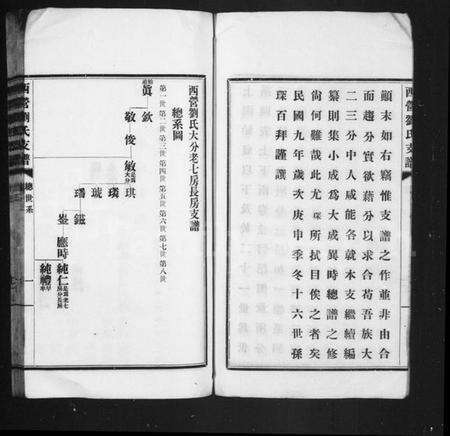 西營劉氏支譜
顯末如右竊惟支譜之作並非由合
而趨分實欲藉分以求合苟吾族大
二三分中人咸能各就本支繼續編
纂則集小成爲大成異時總譜之修
尙何難哉此尤琛所拭目俟之者矣
民國九年歲次庚申季冬十六世孫
琛百拜謹譔
西營劉氏大分老七房長房支譜
總系圖
第一世 第二世 第三世 第四世 第五世 第六世 第七世 第八世
眞 欽
敬 俊 敏 琪
璘
琥
瑞 鎡
鎣 應時 純仁
純禮
西營劉氏支譜
總世系
一